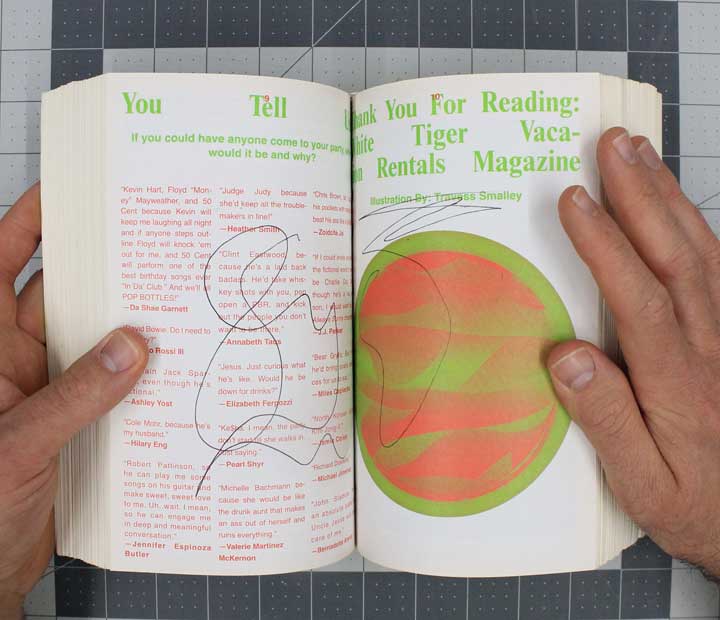 You Tell
9
If you could have anyone come to your party,
would it be and why?
"Kevin Hart, Floyd "Mon-
ey" Mayweather, and 50
Cent because Kevin will
keep me laughing all night
and if anyone steps out-
line Floyd will knock 'em
out for me, and 50 Cent
will perform one of the
best birthday songs ever
"In Da' Club." And we'll all
POP BOTTLES!"
—Da Shae Garnett
"David Bowie. Do I need to
Rossi III
Jack Spar-
even though he's
—Ashley Yost
"Cole Mohr, because he's
my husband."
—Hilary Eng
"Robert Pattinson, so
he can play me some
songs on his guitar and
make sweet, sweet love
to me. Uh, wait. I mean,
so he can engage me
in deep and meaningful
conversation."
—Jennifer Espinoza
Butler
"Judge Judy because
she'd keep all the trouble-
makers in line!"
—Heather Smith
"Clint Eastwood, be-
cause he's a laid back
badass. He'd take whis-
key shots with you, pop
open a PBR, and kick
out the people you don't
want to be there."
—Annabeth Taps
"Jesus. Just curious what
he's like. Would he be
down for drinks?"
—Elizabeth Fergozzi
"Ke$ha. I mean, the party
don't start til she walks in.
Just saying."
—Peart Shyr
"Michelle Bachmann be-
cause she would be like
the drunk aunt that makes
an ass out of herself and
ruins everything."
—Valerie Martinez
McKernon
"Chris Brown,
his pockets with
best his ass like
—Zoidche
"If I could
the fictional
be Charlie
though he's a
—J.J.
"Bear
he'd bring
—Miles
"North
—Jamie
"Richard
—Michael
"John
an absolute
Uncle Jesse
care of me."
10
You For Reading:
Tiger Vaca-
Rentals Magazine
Illustration By: Travess Smalley